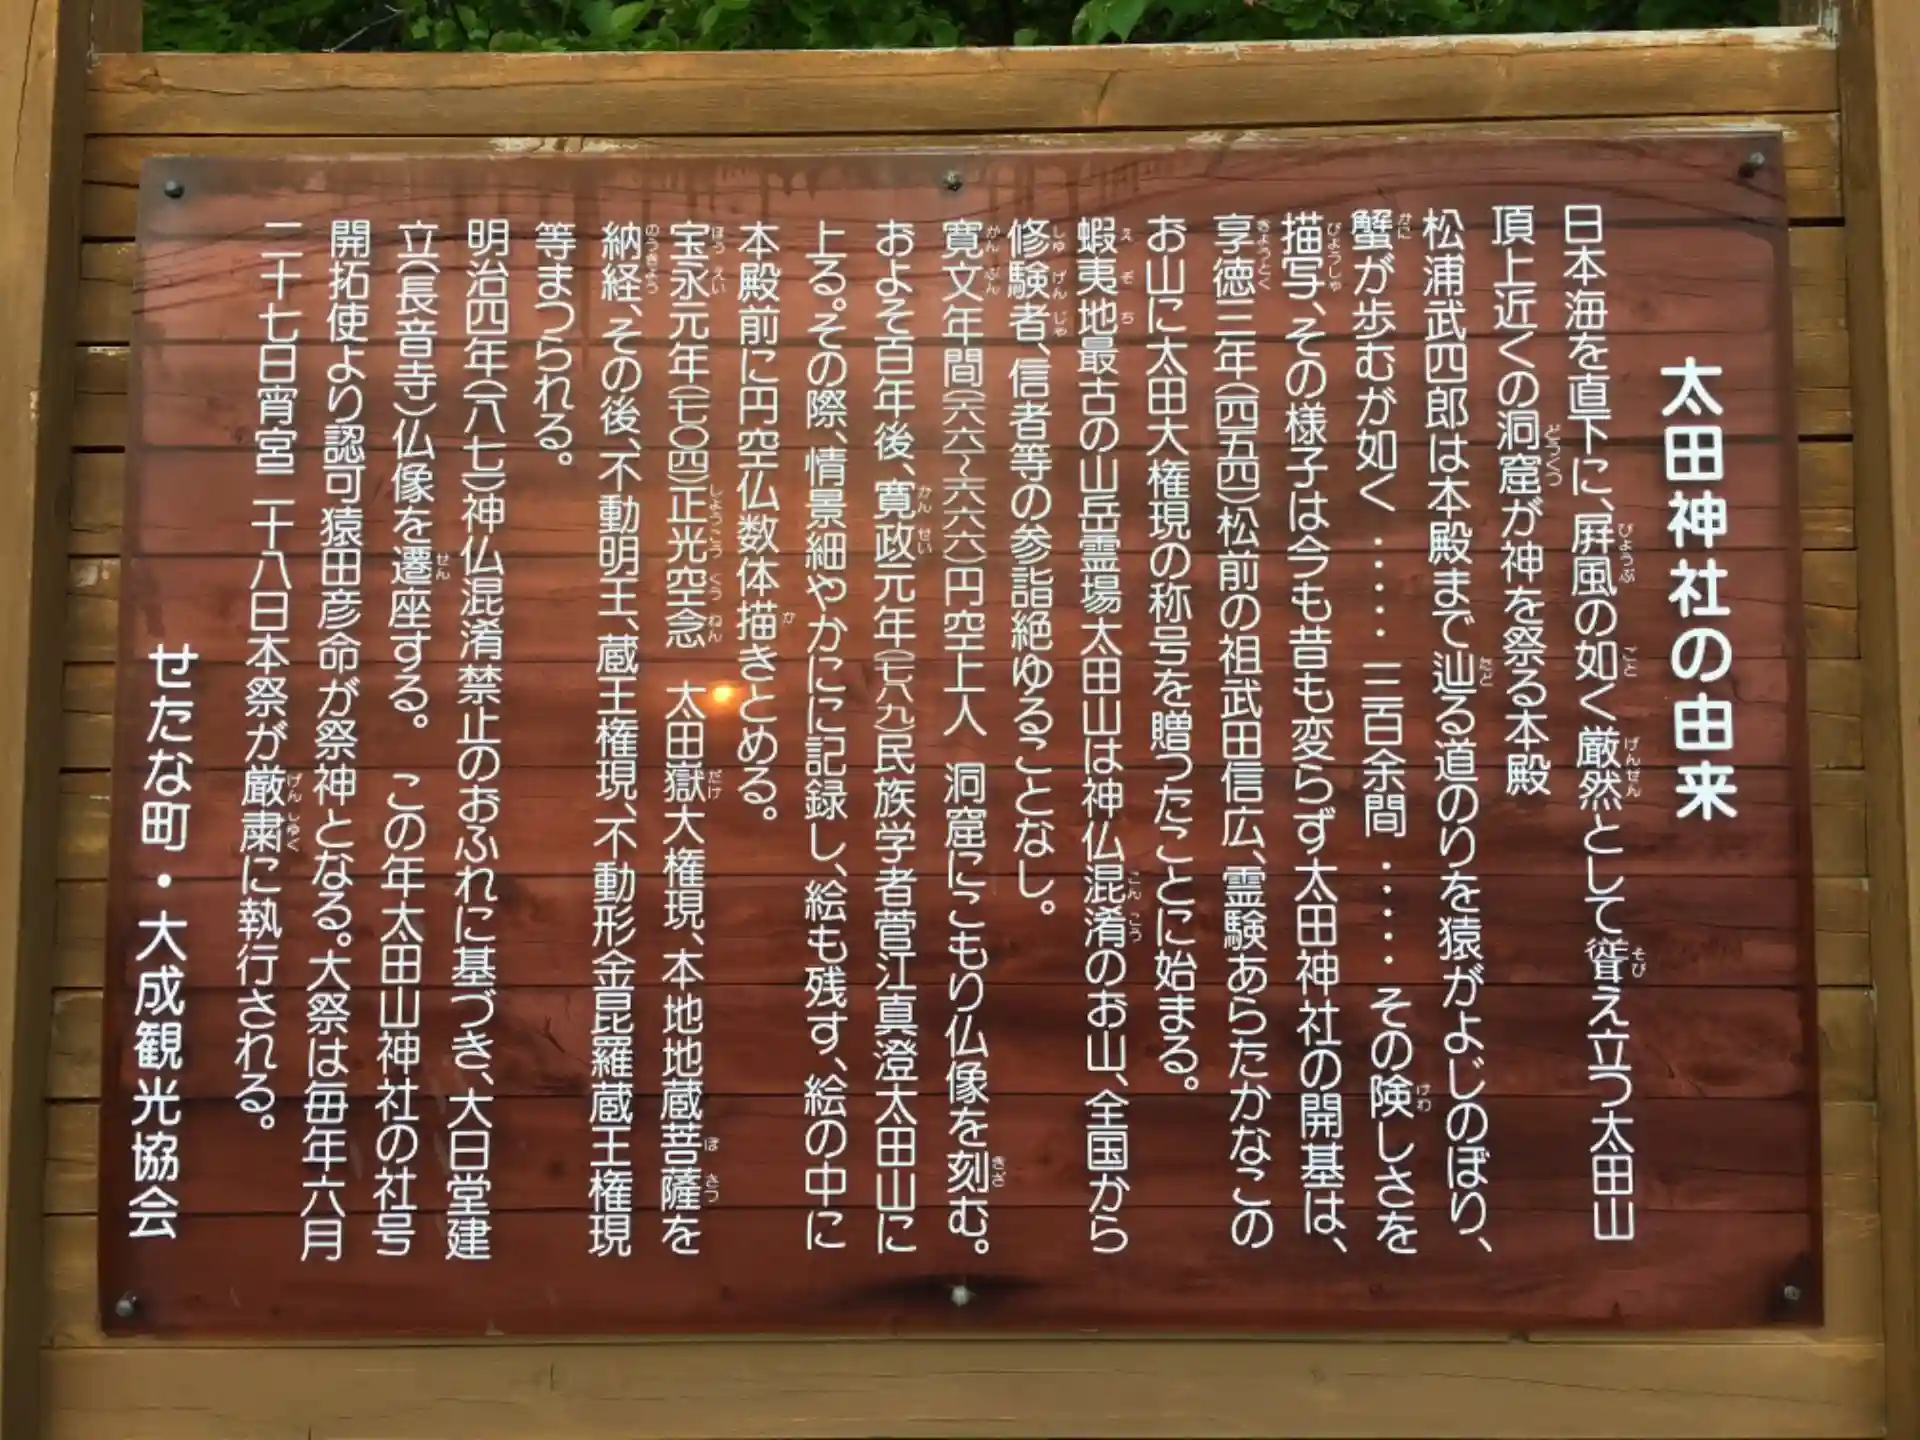 太田神社の由来
日本海を直下に、屛風の如く厳然として聳え立つ太田山
頂上近くの洞窟が神を祭る本殿
松浦武四郎は本殿まで辿る道のりを猿がよじのぼり、
蟹が歩むが如く ・・・・・ 三百余間 ・・・・・ その険しさを
描写、その様子は今も昔も変らず太田神社の開基は、
享徳三年(一四五四)松前の祖武田信広、霊験あらたかなこの
お山に太田大権現の称号を贈ったことに始まる。
蝦夷地最古の山岳霊場太田山は神仏混淆のお山、全国から
修験者、信者等の参詣絶ゆることなし。
寛文年間(一六六一~一六六六)円空上人 洞窟にこもり仏像を刻む。
およそ百年後、寛政元年(一七八九)民族学者菅江真澄太田山に
上る。その際、情景細やかにに記録し、絵も残す、絵の中に
本殿前に円空仏数体描きとめる。
宝永元年(一七〇四)正光空念 太田嶽大権現、本地地蔵菩薩を
納経、その後、不動明王、蔵王権現、不動形金昆羅蔵王権現
等まつられる。
明治四年(一八七一)神仏混淆禁止のおふれに基づき、大日堂建
立(長音寺)仏像を遷座する。 この年太田山神社の社号
開拓使より認可猿田彦命が祭神となる。大祭は毎年六月
二十七日宵宮二十八日本祭が厳粛に執行される。
せたな町・大成観光協会